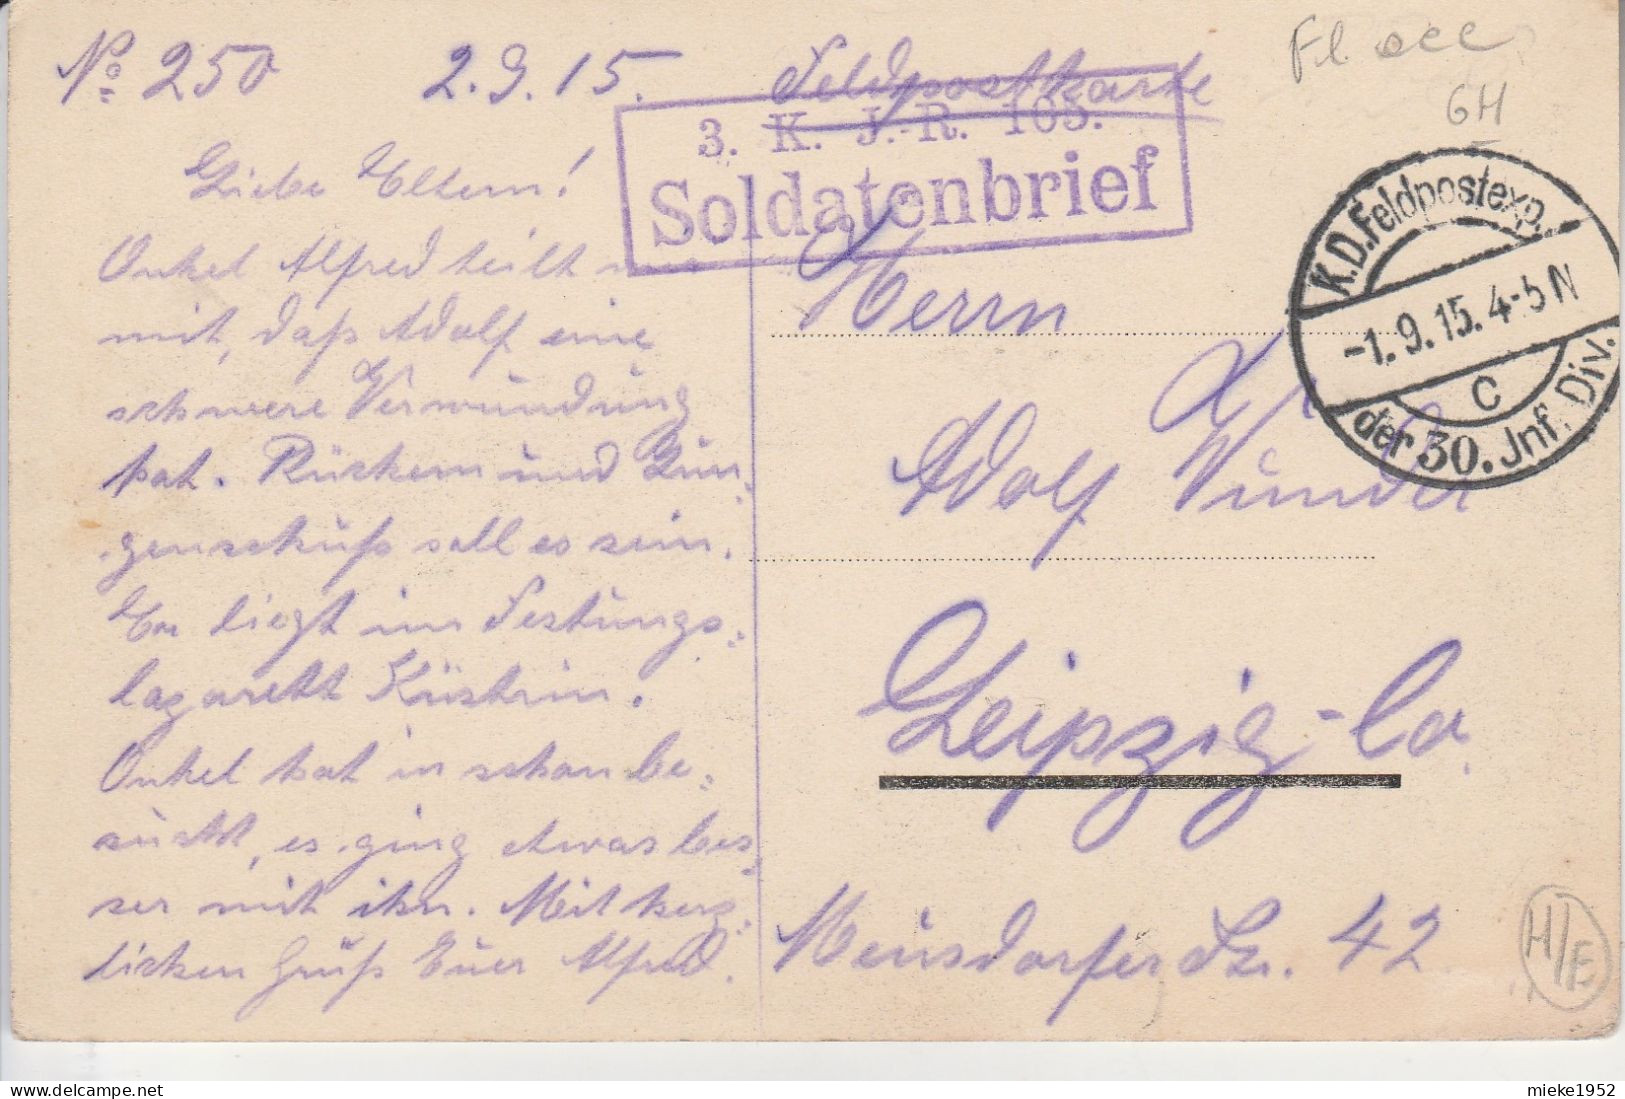 No 250 2.9.15. Feldpostkarte
Fl occ
GH
3. K. J.-R. 105.
Soldatenbrief
K.D. Feldpostexp.
-1.9.15. 4-5 N
C
der 30. Jnf. Div.
Liebe Eltern!
Onkel Alfred teilt mir
mit, daß Adolf eine
schwere Verwundung
hat. Rücken und Lun-
genschuß soll es sein.
Er liegt im Festungs-
lazarett Küstrin.
Onkel hat ihn schon be-
sucht, es ging etwas bes-
ser mit ihm. Mit herz-
lichen Gruß Euer Alfred.
Herrn
Adolf
Leipzig-Co.
Meusdorfer Str. 42
H/E
mieke1952